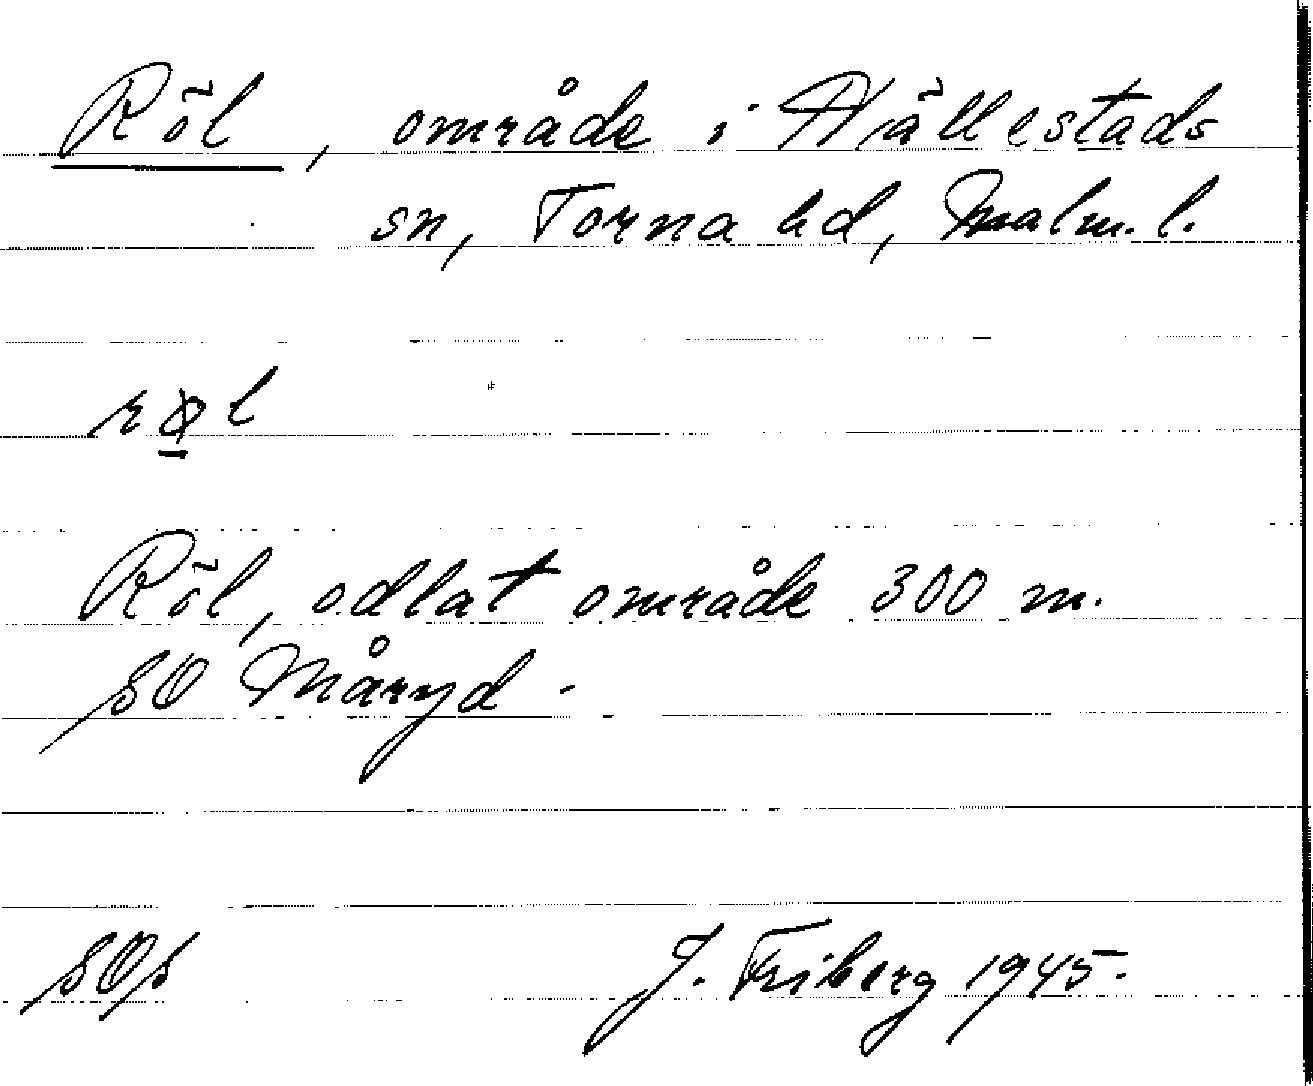 Röl, område i Hällestads
sn, Torna hd, Malm. l.
røl
Röl, odlat område 300 m.
SO Måryd.
J. Friberg 1945.